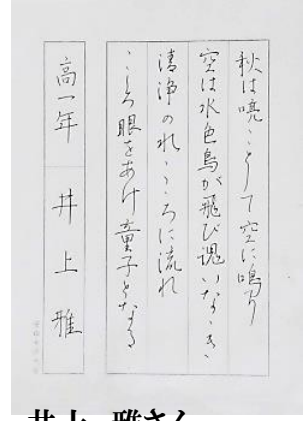 秋は喨々として空に鳴り
空は水色鳥が飛び魂いななき
清浄の水こころに流れ
こころ眼をあけ童子となる
高一年 井上 雅
井上 雅さん